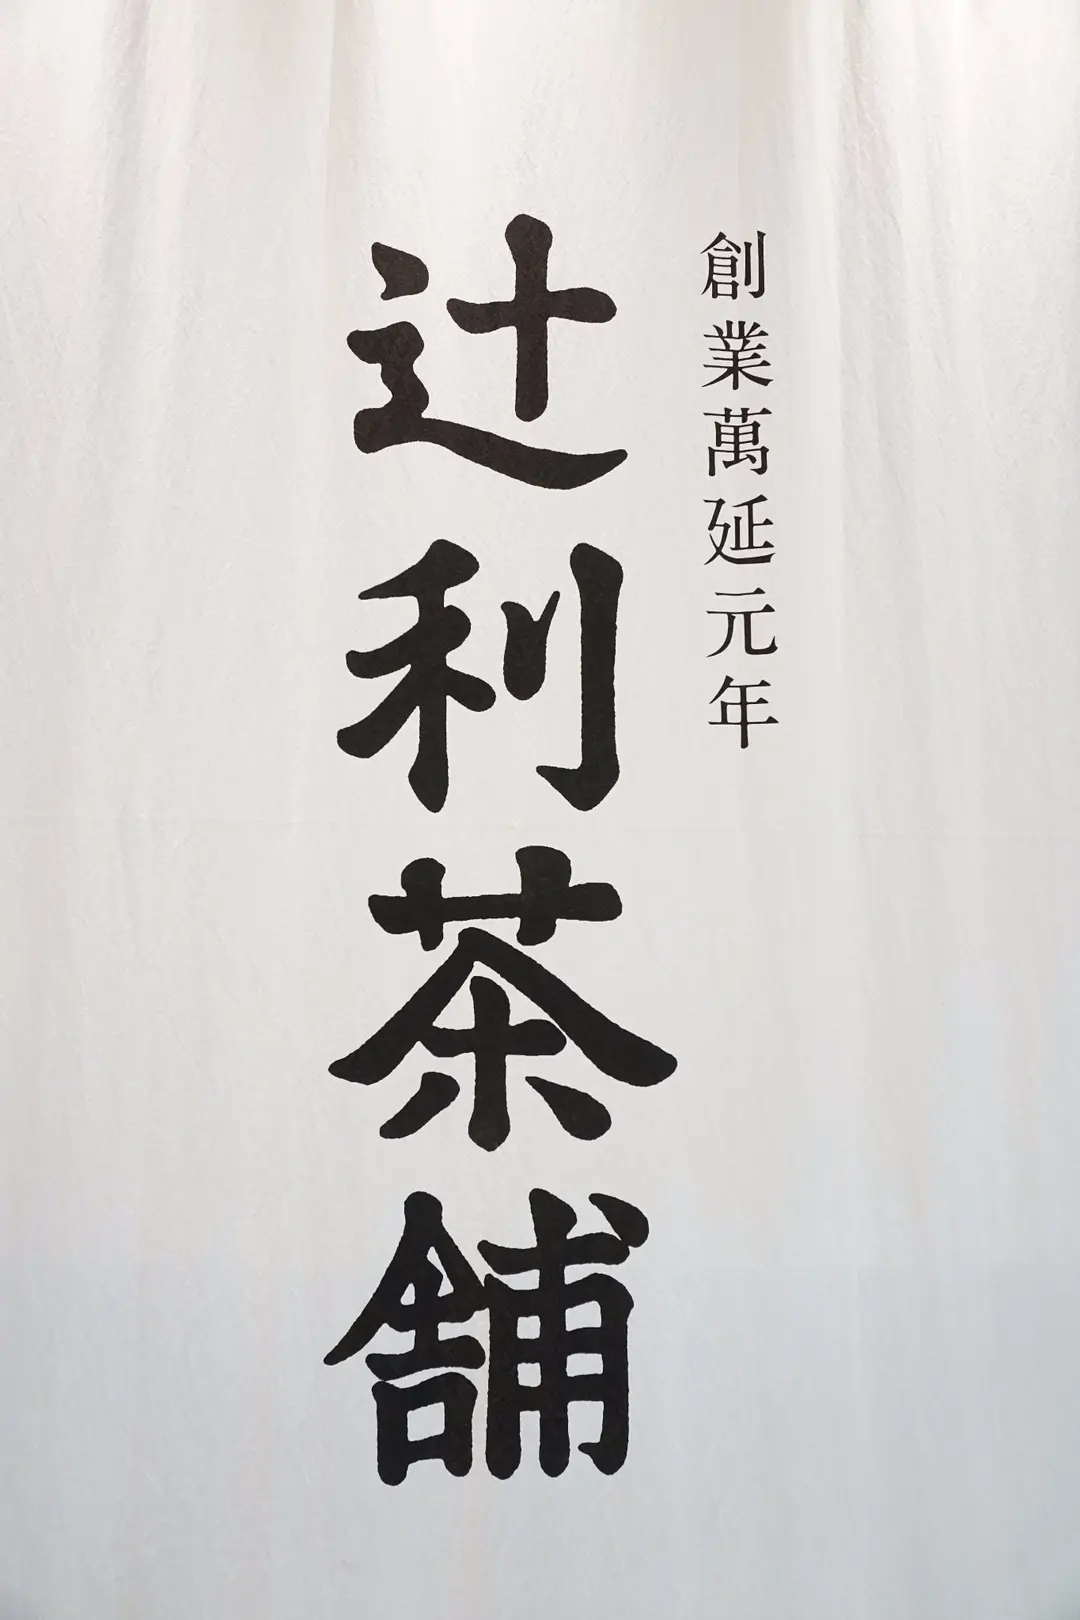 創業萬延元年
辻利茶舗